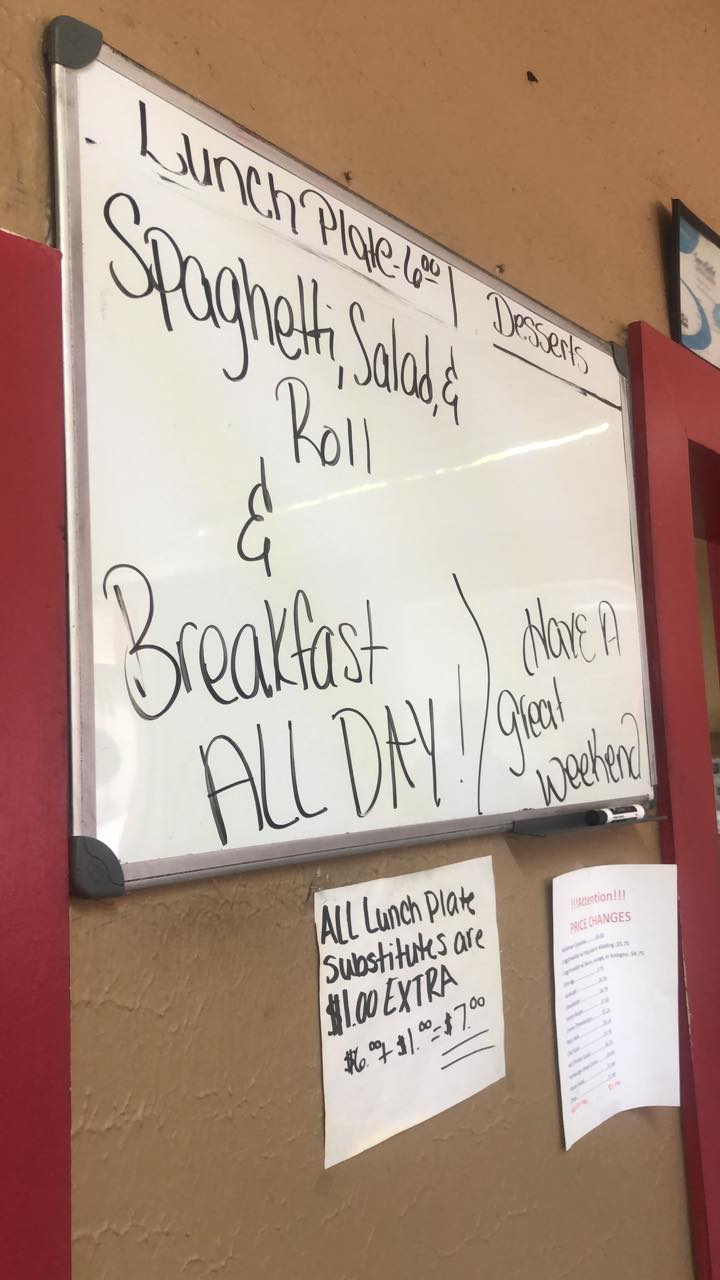 Lunch Plate - 6.00
Spaghetti, Salad, &
Roll
&
Breakfast
ALL DAY!
Desserts
Have A
great
weekend
ALL Lunch Plate
substitutes are
$1.00 EXTRA
$6.00 + $1.00 = $7.00
!!!Attention!!!
PRICE CHANGES